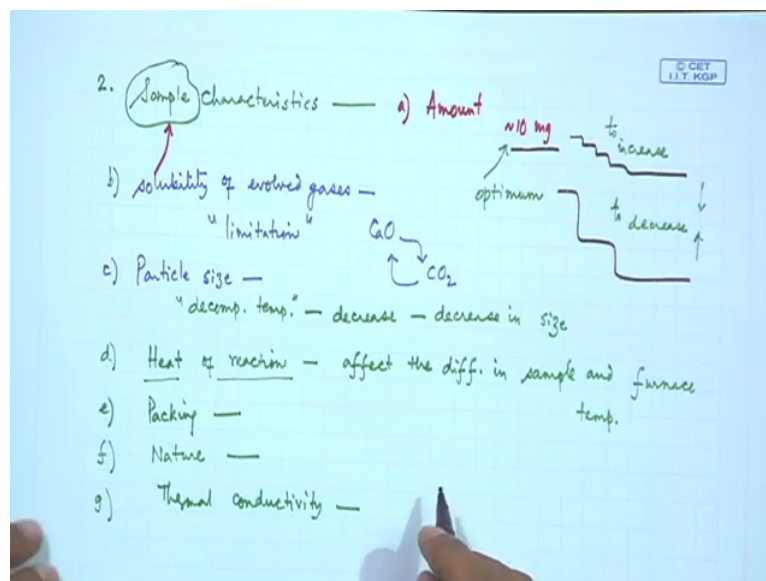 © CET
I.I.T. KGP
2. Sample Characteristics — a) Amount
~10 mg
to increase
optimum
to decrease
b) solubility of evolved gases —
"limitation"
CaO
CO2
c) Particle size —
"decomp. temp." — decrease — decrease in size
d) Heat of reaction — affect the diff. in sample and furnace
temp.
e) Packing —
f) Nature —
g) Thermal conductivity —